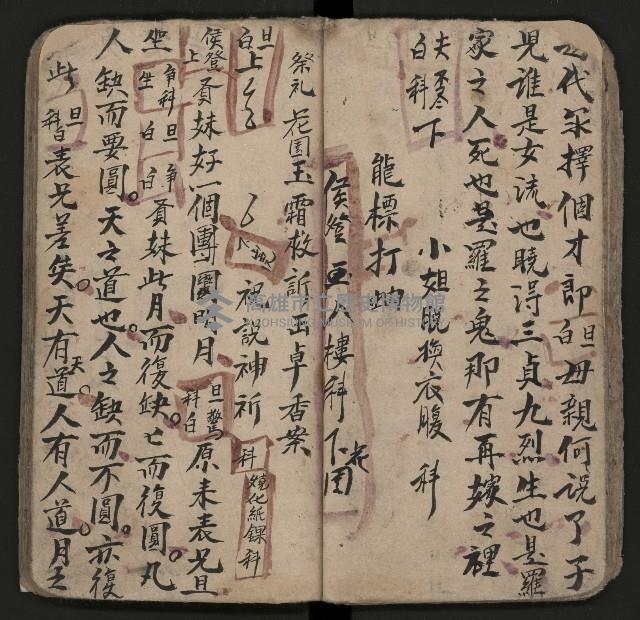 代采擇個才郎旦白母親何说了子
児誰是女流也曉得三貞九烈生也是羅
家之人死也是羅之鬼那有再嫁之裡
夫
白科下
小姐脱換衣腹科
龍標打
侯登 樓科下
祭礼花园玉霜救訴玉卓香案
旦白上
祝説神祈科燒化紙錁科
侯登上賁妹好一個團圓明月旦驚科白原未表兄旦
坐争科旦争坐白白賁妹此月而復缺七而復圓丸
人缺而要圓。天之道也。人之缺而不圓。亦復
此旦科白表兄差矣。天有天道。人有人道。月之
高雄市立歷史博物館
KAOHSIUNG MUSEUM OF HISTORY